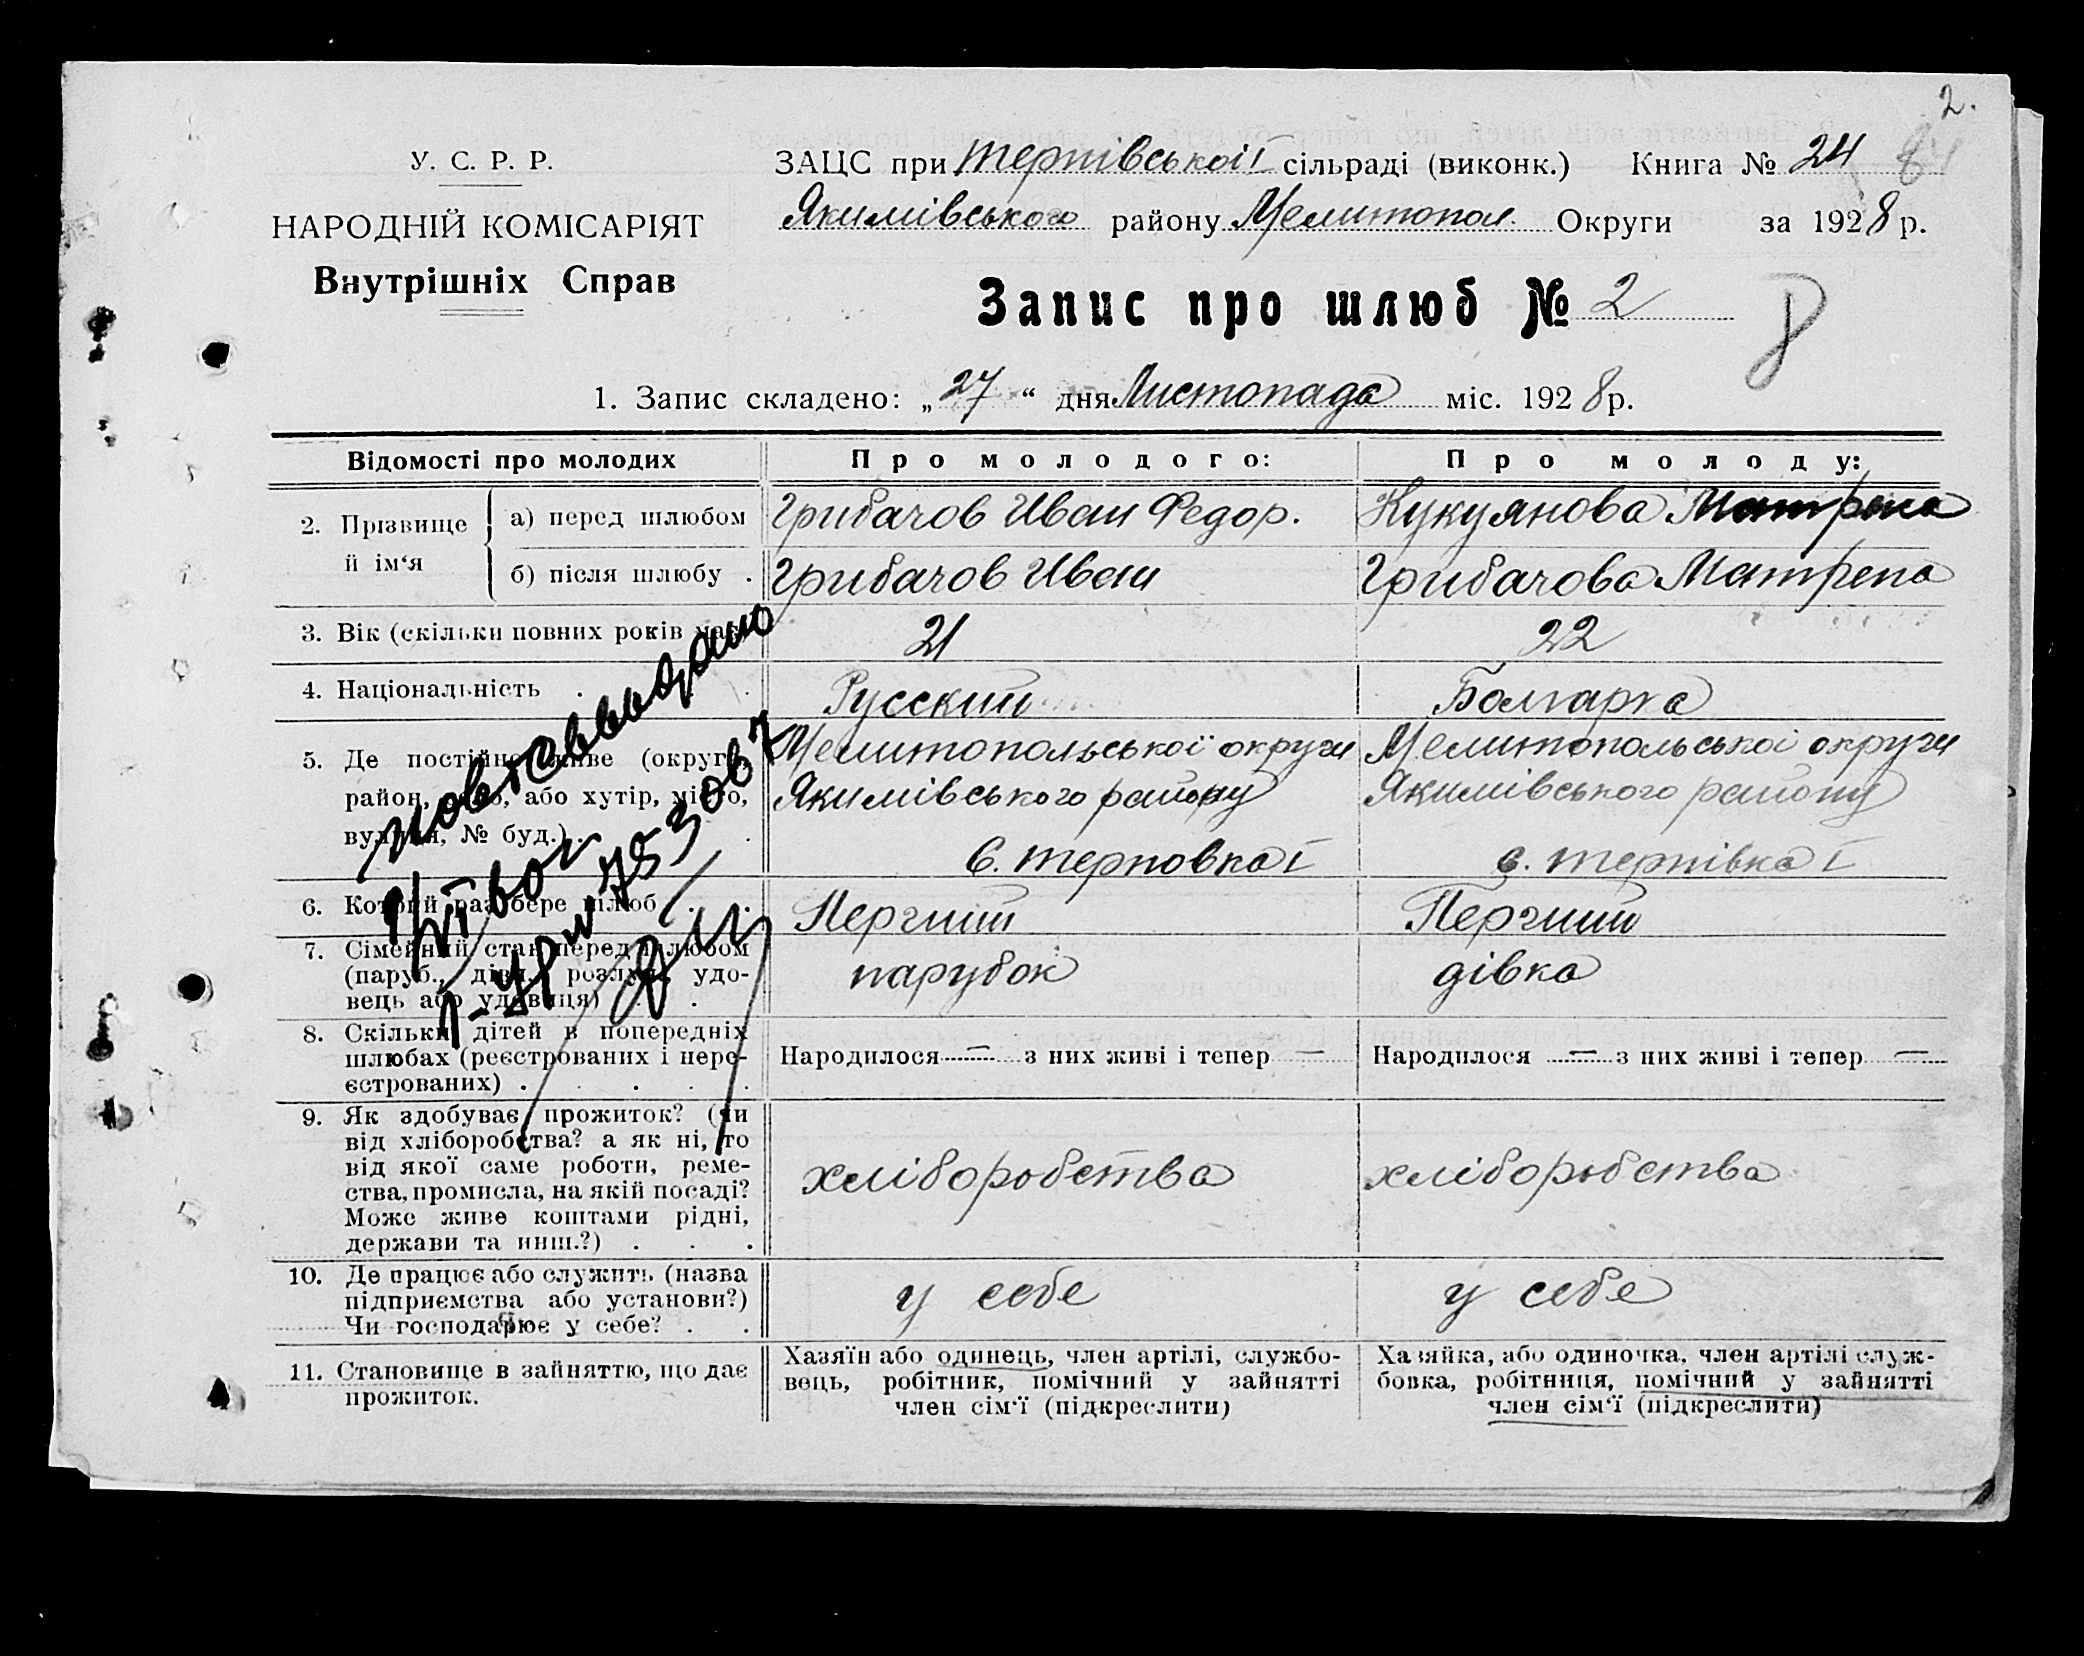 2.
У. С. Р. Р.
НАРОДНІЙ КОМІСАРІЯТ
Внутрішніх Справ
ЗАЦС при Терпівської I сільраді (виконк.) Книга № 24
Якимівського району Мелитопол. Округи за 1928 р.
Запис про шлюб № 2
1. Запис складено: „27“ дня Листопада міс. 1928 р.
Відомості про молодих
Про молодого:
Про молоду:
2. Прізвище й ім‘я
а) перед шлюбом
Грибачов Иван Федор.
Кукуянова Матрена
б) після шлюбу .
Грибачов Иван
Грибачова Матрена
3. Вік (скільки повних років має)
21
22
4. Національність . .
Русский
Болгарка
5. Де постійно живе (округа,
район, село, або хутір, місто,
вулиця, № буд.) . .
Мелитопольської округи
Якимівського району
с. Терповка I
Мелитопольської округи
Якимівського району
с. Терпівка I
6. Котрий раз бере шлюб . .
Перший
Перший
7. Сімейний стан перед шлюбом
(паруб., дівч., розлуч., удо-
вець або удовиця) . .
парубок
дівка
8. Скільки дітей в попередніх
шлюбах (реєстрованих і нере-
єстрованих) . . . . .
Народилося — з них живі і тепер —
Народилося — з них живі і тепер —
9. Як здобуває прожиток? (чи
від хліборобства? а як ні, то
від якої саме роботи, реме-
ства, промисла, на якій посаді?
Може живе коштами рідні,
держави та инш.?) . . .
хліборобства
хліборобства
10. Де працює або служить (назва
підприємства або установи?)
Чи господарює у себе? . .
у себе
у себе
11. Становище в зайняттю, що дає
прожиток.
Хазяїн або одинець, член артілі, службо-
вець, робітник, помічний у зайнятті
член сім‘ї (підкреслити)
Хазяйка, або одиночка, член артілі служ-
бовка, робітниця, помічний у зайнятті
член сім‘ї (підкреслити)